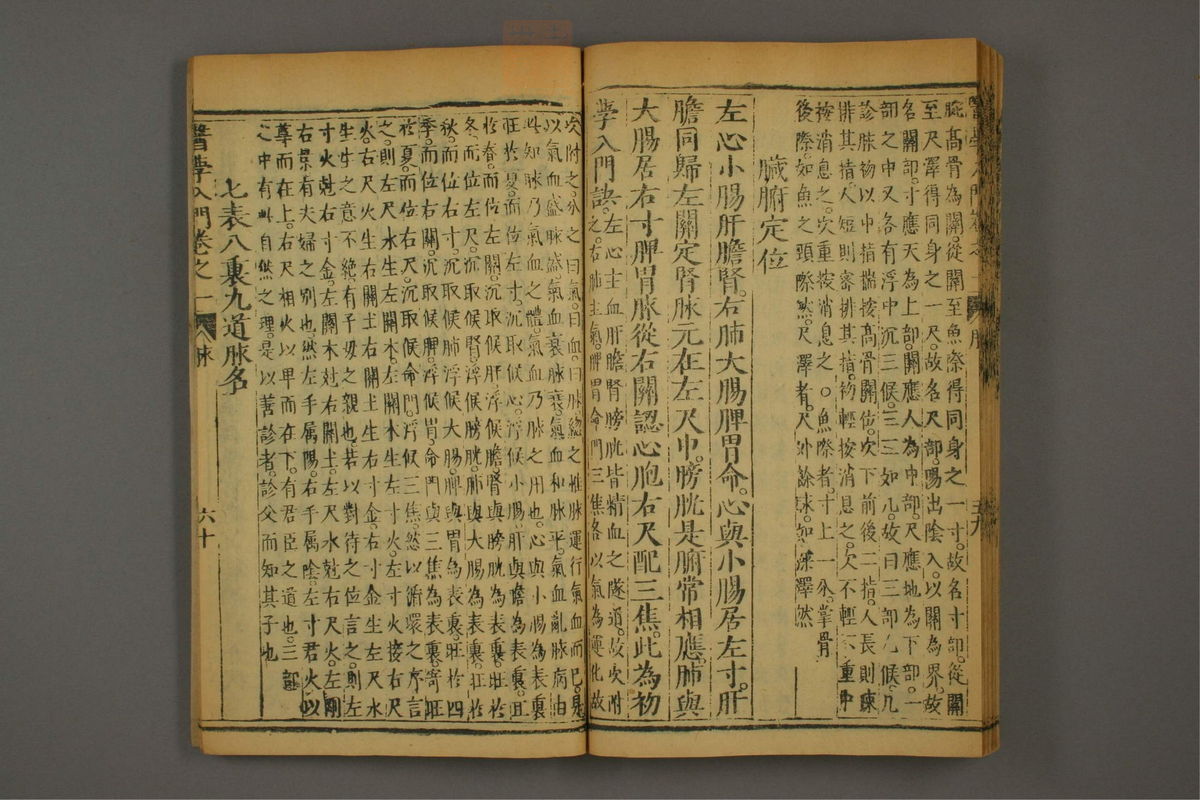 醫學入門卷之一 脉 五九
脘高骨為關從關至魚際得同身之一寸故名寸部從關
至尺澤得同身之一尺故名尺部陽出陰入以關為界故
名關部寸應天為上部關應人為中部尺應地為下部一
部之中又各有浮中沉三候三三如九故曰三部九候凡
診脉初以中指揣按高骨關位次下前後二指人長則疎
排其指人短則密排其指初輕按消息之次不輕不重中
按消息之次重按消息之○魚際者寸上一分掌骨
後際如魚之頭際然尺澤者尺外餘脉如深澤然
臟腑定位
左心小腸肝膽腎右肺大腸脾胃命心與小腸居左寸肝
膽同歸左關定腎脉元在左尺中膀胱是腑常相應肺與
大腸居右寸脾胃脉從右關認心胞右尺配三焦此為初
學入門訣左心主血肝膽腎膀胱皆精血之隧道故次附
之右肺主氣脾胃命門三焦各以氣為運化故
次附之分之曰氣曰血曰脉總之惟脉運行氣血而已是
以氣血盛脉盛氣血衰脉衰氣血和脉平氣血亂脉病由
此知脉乃氣血之體氣血乃脉之用也心與小腸為表裏
旺於夏而位左寸沉取候心浮候小腸肝與膽為表裏旺
於春而位左關沉取候肝浮候膽腎與膀胱為表裏旺於
冬而位左尺沉取候腎浮候膀胱肺與大腸為表裏旺於
秋而位右寸沉取候肺浮候大腸脾與胃為表裏旺於四
季而位右關沉取候脾浮候胃命門與三焦為表裏寄旺
於夏而位右尺沉取候命門浮候三焦然以循環之序言
之則左尺水生左關木左關木生左寸火左寸火接右尺
火右尺火生右關土右關土生右寸金右寸金生左尺水
生生之意不絕有子母之親也若以對待之位言之則左
寸火尅右寸金左關木尅右關土左尺水尅右尺火左剛
右柔有夫婦之別也然左手属陽右手属陰左寸君火以
尊而在上右尺相火以卑而在下有君臣之道也三部
之中有此自然之理是以善診者診父而知其子也
七表八裏九道脉名
醫學入門卷之一 脉 六十